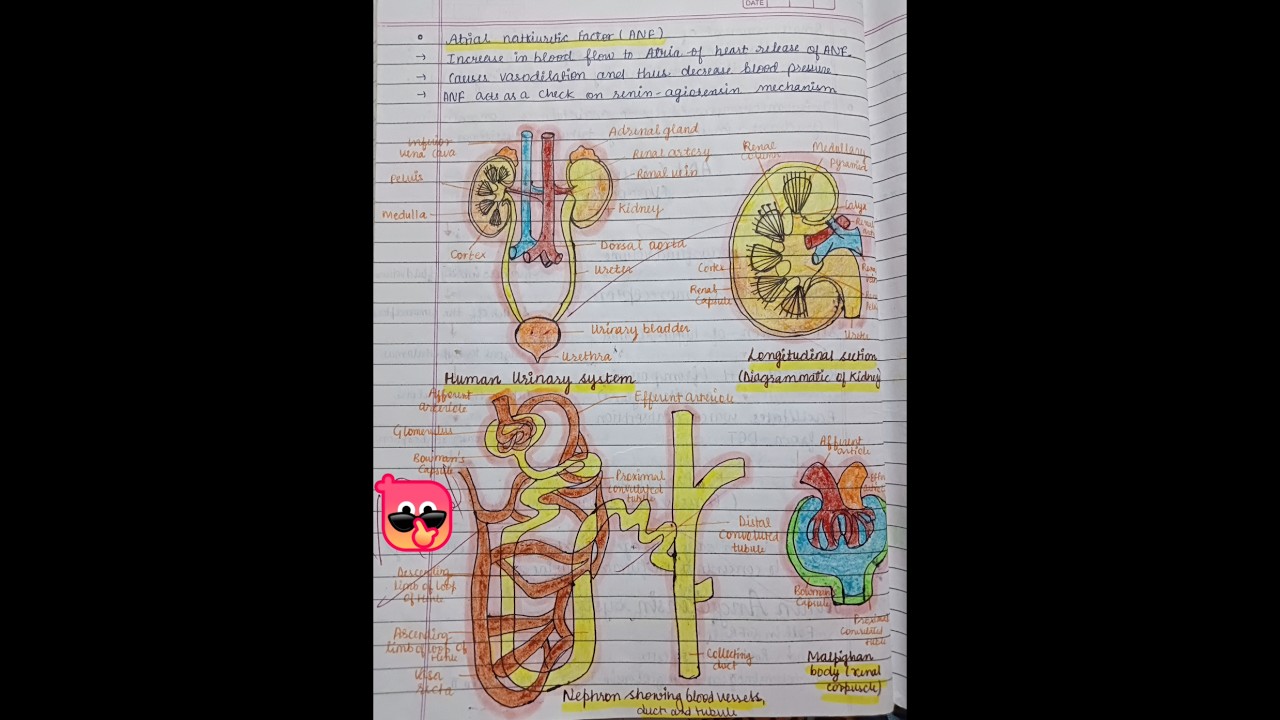 DATE
Atrial natriuretic factor (ANF)
→ Increase in blood flow to Atria of heart release of ANF.
→ Causes vasodilation and thus decrease blood pressure
→ ANF acts as a check on renin-agiotensin mechanism
Inferior
vena cava
Pelvis
Medulla
Cortex
Adrenal gland
Renal artery
Renal vein
Kidney
Dorsal aorta
Ureter
Urinary bladder
Urethra
Human Urinary system
Renal
Medullary
pyramid
Calyx
Renal
Cortex
Renal
Capsule
Longitudinal section
(Diagrammatic of Kidney)
Afferent
arteriole
Glomerulus
Bowman's
Capsule
Efferent arteriole
Proximal
convoluted
tubule
Distal
Convoluted
tubule
Descending
limb of loop
of Henle
Ascending
limb of loop of
Henle
Vasa
recta
Collecting
duct
Nephron showing blood vessels,
duct and tubule
Afferent
Bowman's
Capsule
Malpighan
body (renal
corpuscle)